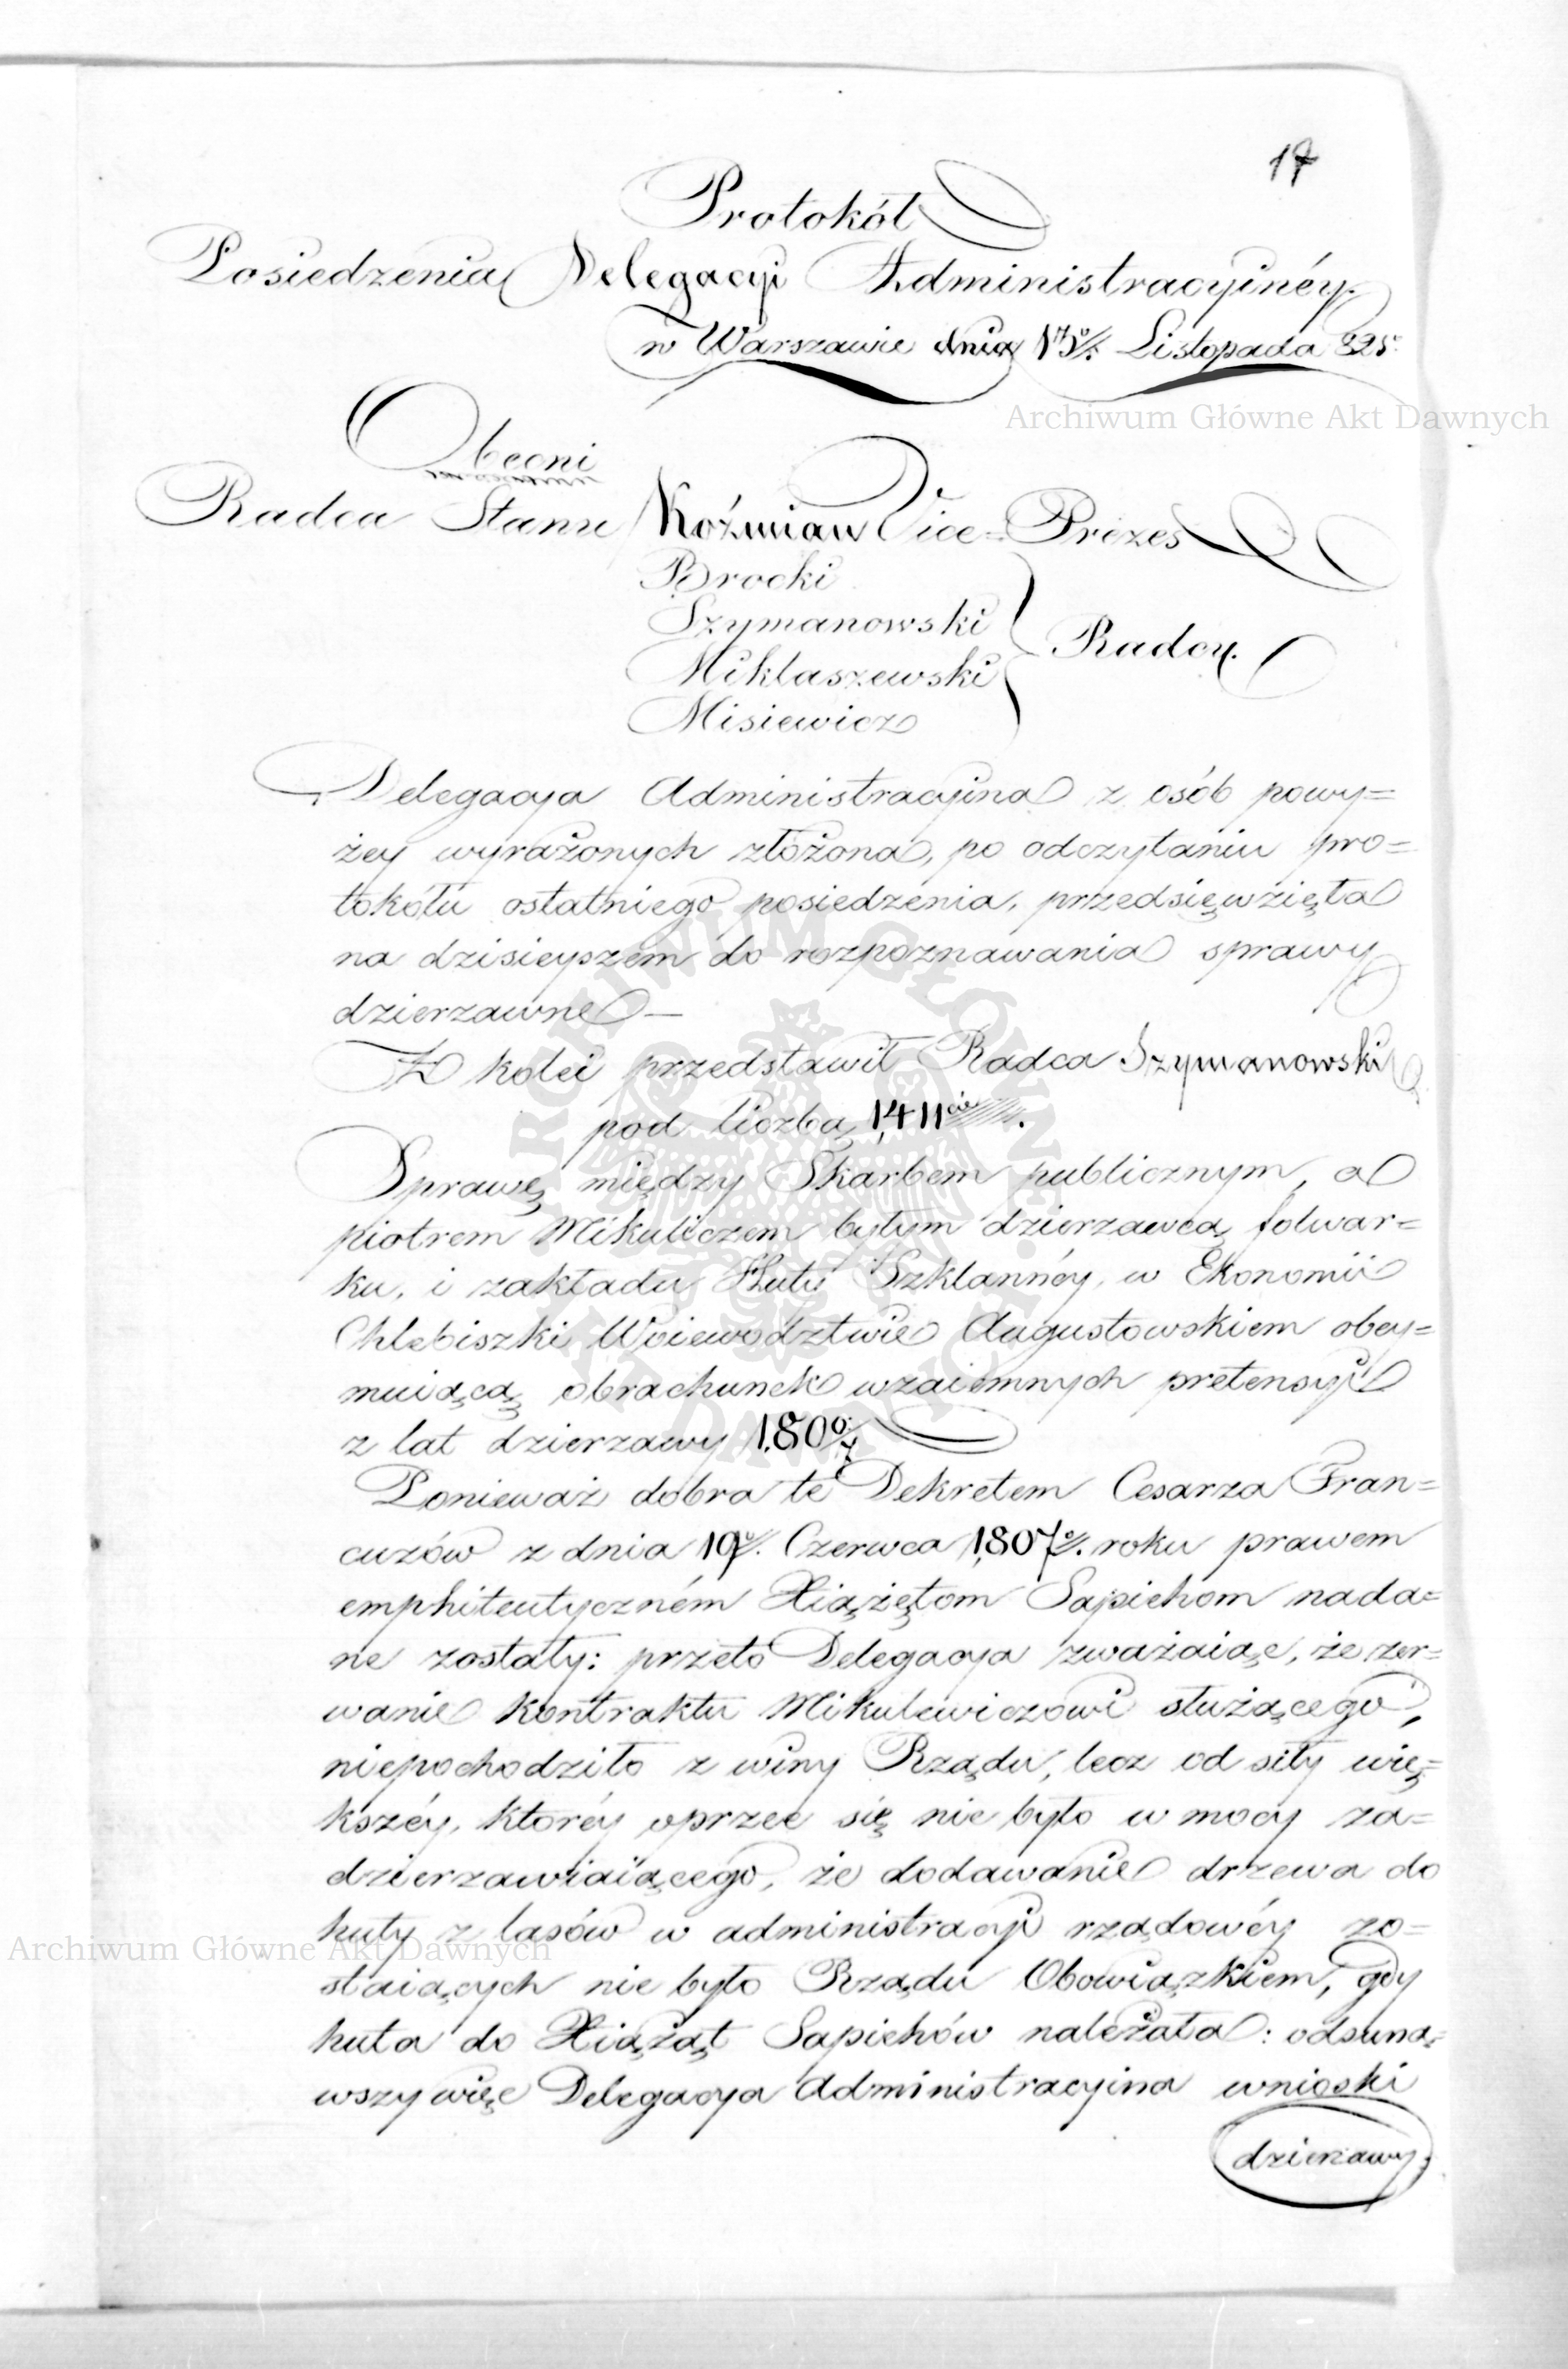 17
Protokół
Posiedzenia Delegacyi Administracyinéy
w Warszawie dnia 15º/. Listopada 825.
Archiwum Główne Akt Dawnych
Obecni
Radca Stanu Koźmian Vice-Prezes
Brocki
Szymanowski
Radcy.
Miklaszewski
Misiewicz
Delegacya Administracyina z osób powy=
żey wyrażonych złożona, po odczytaniu pro=
tokółu ostatniego posiedzenia, przedsięwzięła
na dzisieyszem do rozpoznawania sprawy
dzierzawne —
Z kolei przedstawił Radca Szymanowski
pod liczbą 1,411
Sprawę między Skarbem publicznym, a
piotrem Mikuliczem byłym dzierzawcą folwar=
ku, i zakładu Huty Szklannéy, w Ekonomii
Chlebiszki Woiewodztwie Augustowskiem obey=
muiącą obrachunek wzaiemnych pretensyi
z lat dzierzawy 1,806/7
Ponieważ dobra te Dekretem Cesarza Fran=
cuzów z dnia 19º/. Czerwca 1,807º/. roku prawem
emphiteutyczném Xiążętom Sapiehom nada=
ne zostały: przeto Delegacya zważaiąc, że zer=
wanie kontraktu Mikulewiczowi służącego,
niepochodziło z winy Rządu, lecz od siły wię=
kszéy, któréy oprzec się nie było w mocy za=
dzierzawiaiącego, że dodawanie drzewa do
huty z lasów w administracyi rządowéy zo=
Archiwum Główne Akt Dawnych
staiących nie było Rządu Obowiązkiem, gdy
huta do Xiążąt Sapiehów należała: odsuną=
wszy więc Delegacya Administracyina wnioski
dzierzawy
ARCHIWUM GŁÓWNE AKT DAWNYCH